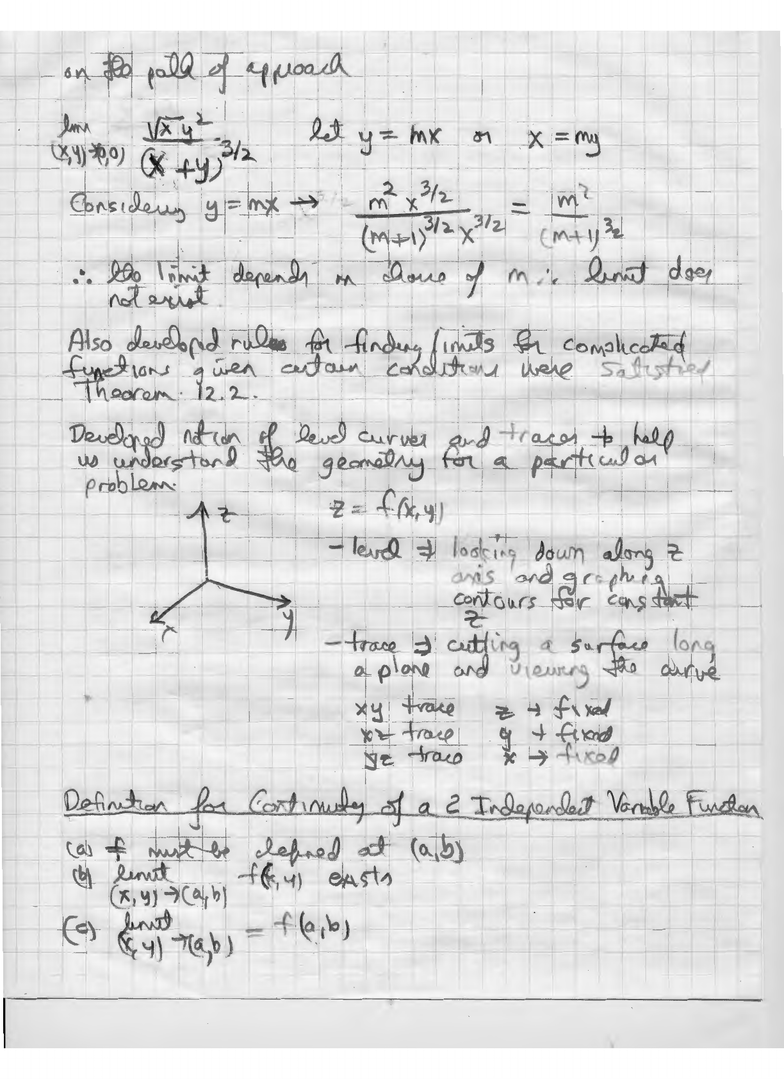 on the path of approach
lim (x,y)→(0,0) √x y² / (x + y)^3/2 let y = mx or x = my
Considering y = mx → m² x^3/2 / (m+1)^3/2 x^3/2 = m² / (m+1)^3/2
∴ the limit depends on choice of m ∴ limit does
not exist.
Also developed rules for finding limits for complicated
functions given certain conditions were satisfied
Theorem 12.2.
Developed notion of level curves and traces to help
us understand the geometry for a particular
problem.
z
x
y
z = f(x,y)
- level ⇒ looking down along z
axis and graphing
contours for constant
z
- trace ⇒ cutting a surface long
a plane and viewing the curve
xy trace z → fixed
xz trace y → fixed
yz trace x → fixed
Definition for Continuity of a 2 Independent Variable Function
(a) f must be defined at (a,b)
(b) limit (x,y)→(a,b) f(x,y) exists
(c) limit (x,y)→(a,b) = f(a,b)